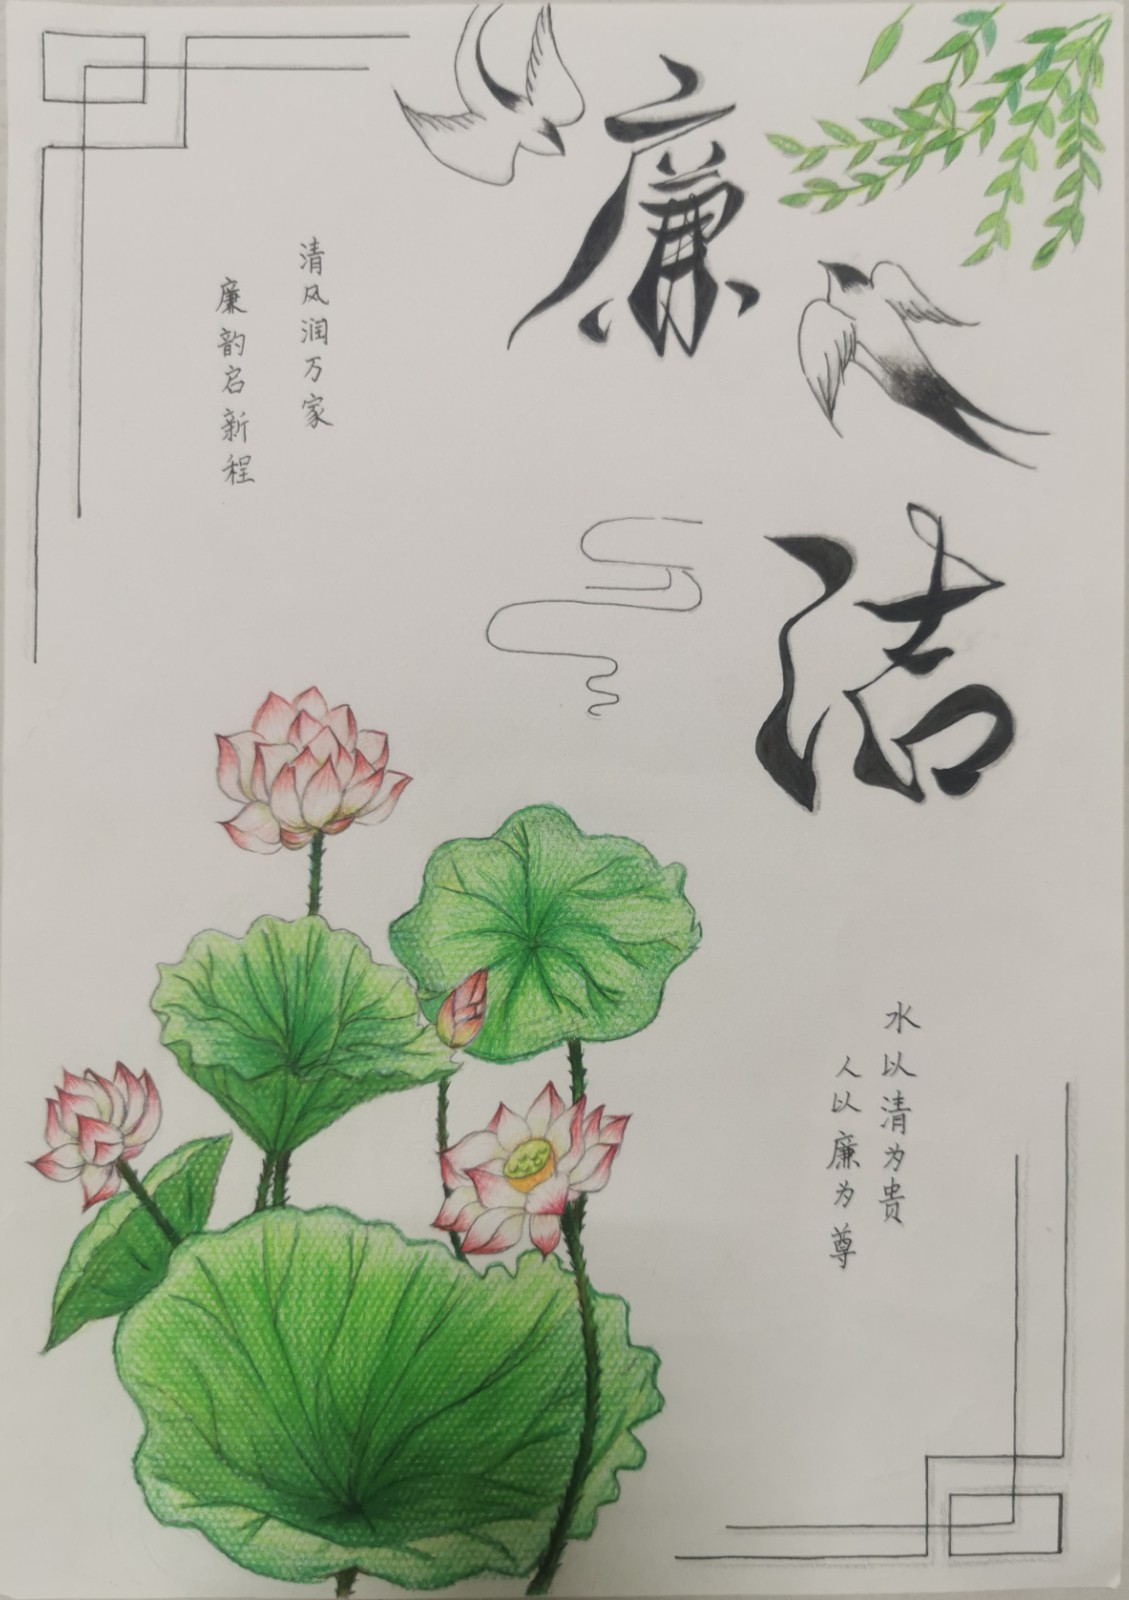 廉洁
清风润万家
廉韵启新程
水以清为贵
人以廉为尊